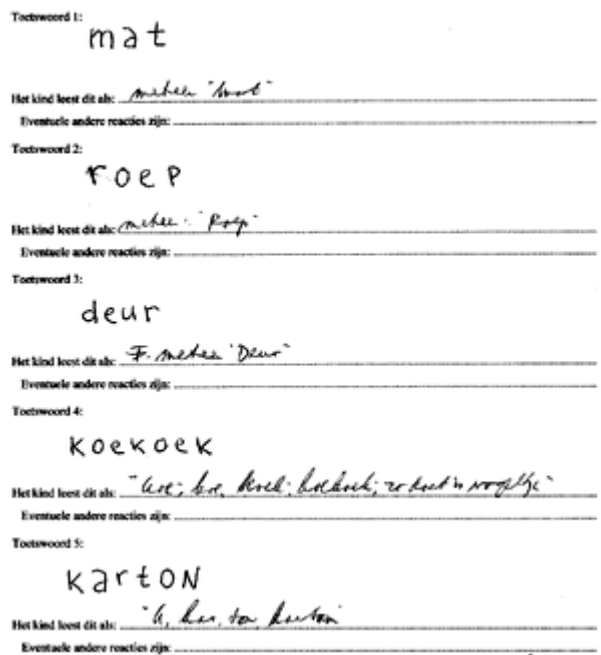 Toetswoord 1:
mat
Het kind leest dit als: meteen "mat"
Eventuele andere reacties zijn:
Toetswoord 2:
roep
Het kind leest dit als: meteen: "Roep"
Eventuele andere reacties zijn:
Toetswoord 3:
deur
Het kind leest dit als: F. meteen "Deur"
Eventuele andere reacties zijn:
Toetswoord 4:
koekoek
Het kind leest dit als: koekoek; zo doet 'n vogeltje"
Eventuele andere reacties zijn:
Toetswoord 5:
kartoN
Het kind leest dit als: "k, kar, ton, karton"
Eventuele andere reacties zijn: